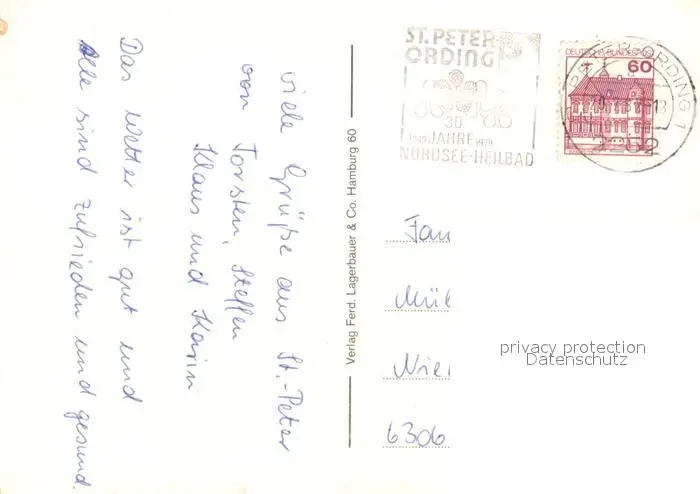 viele Grüße aus St.-Peter
von Torsten, Steffen
Klaus und Karin
Das Wetter ist gut und
Alle sind zufrieden und gesund.
Verlag Ferd. Lagerbauer & Co. Hamburg 60
ST. PETER-
ORDING
30
1949 JAHRE 1979
NORDSEE-HEILBAD
DEUTSCHE BUNDESPOST
60
ST. PETER-ORDING 1
2252
Fan
Mül
Nie
6306
privacy protection
Datenschutz